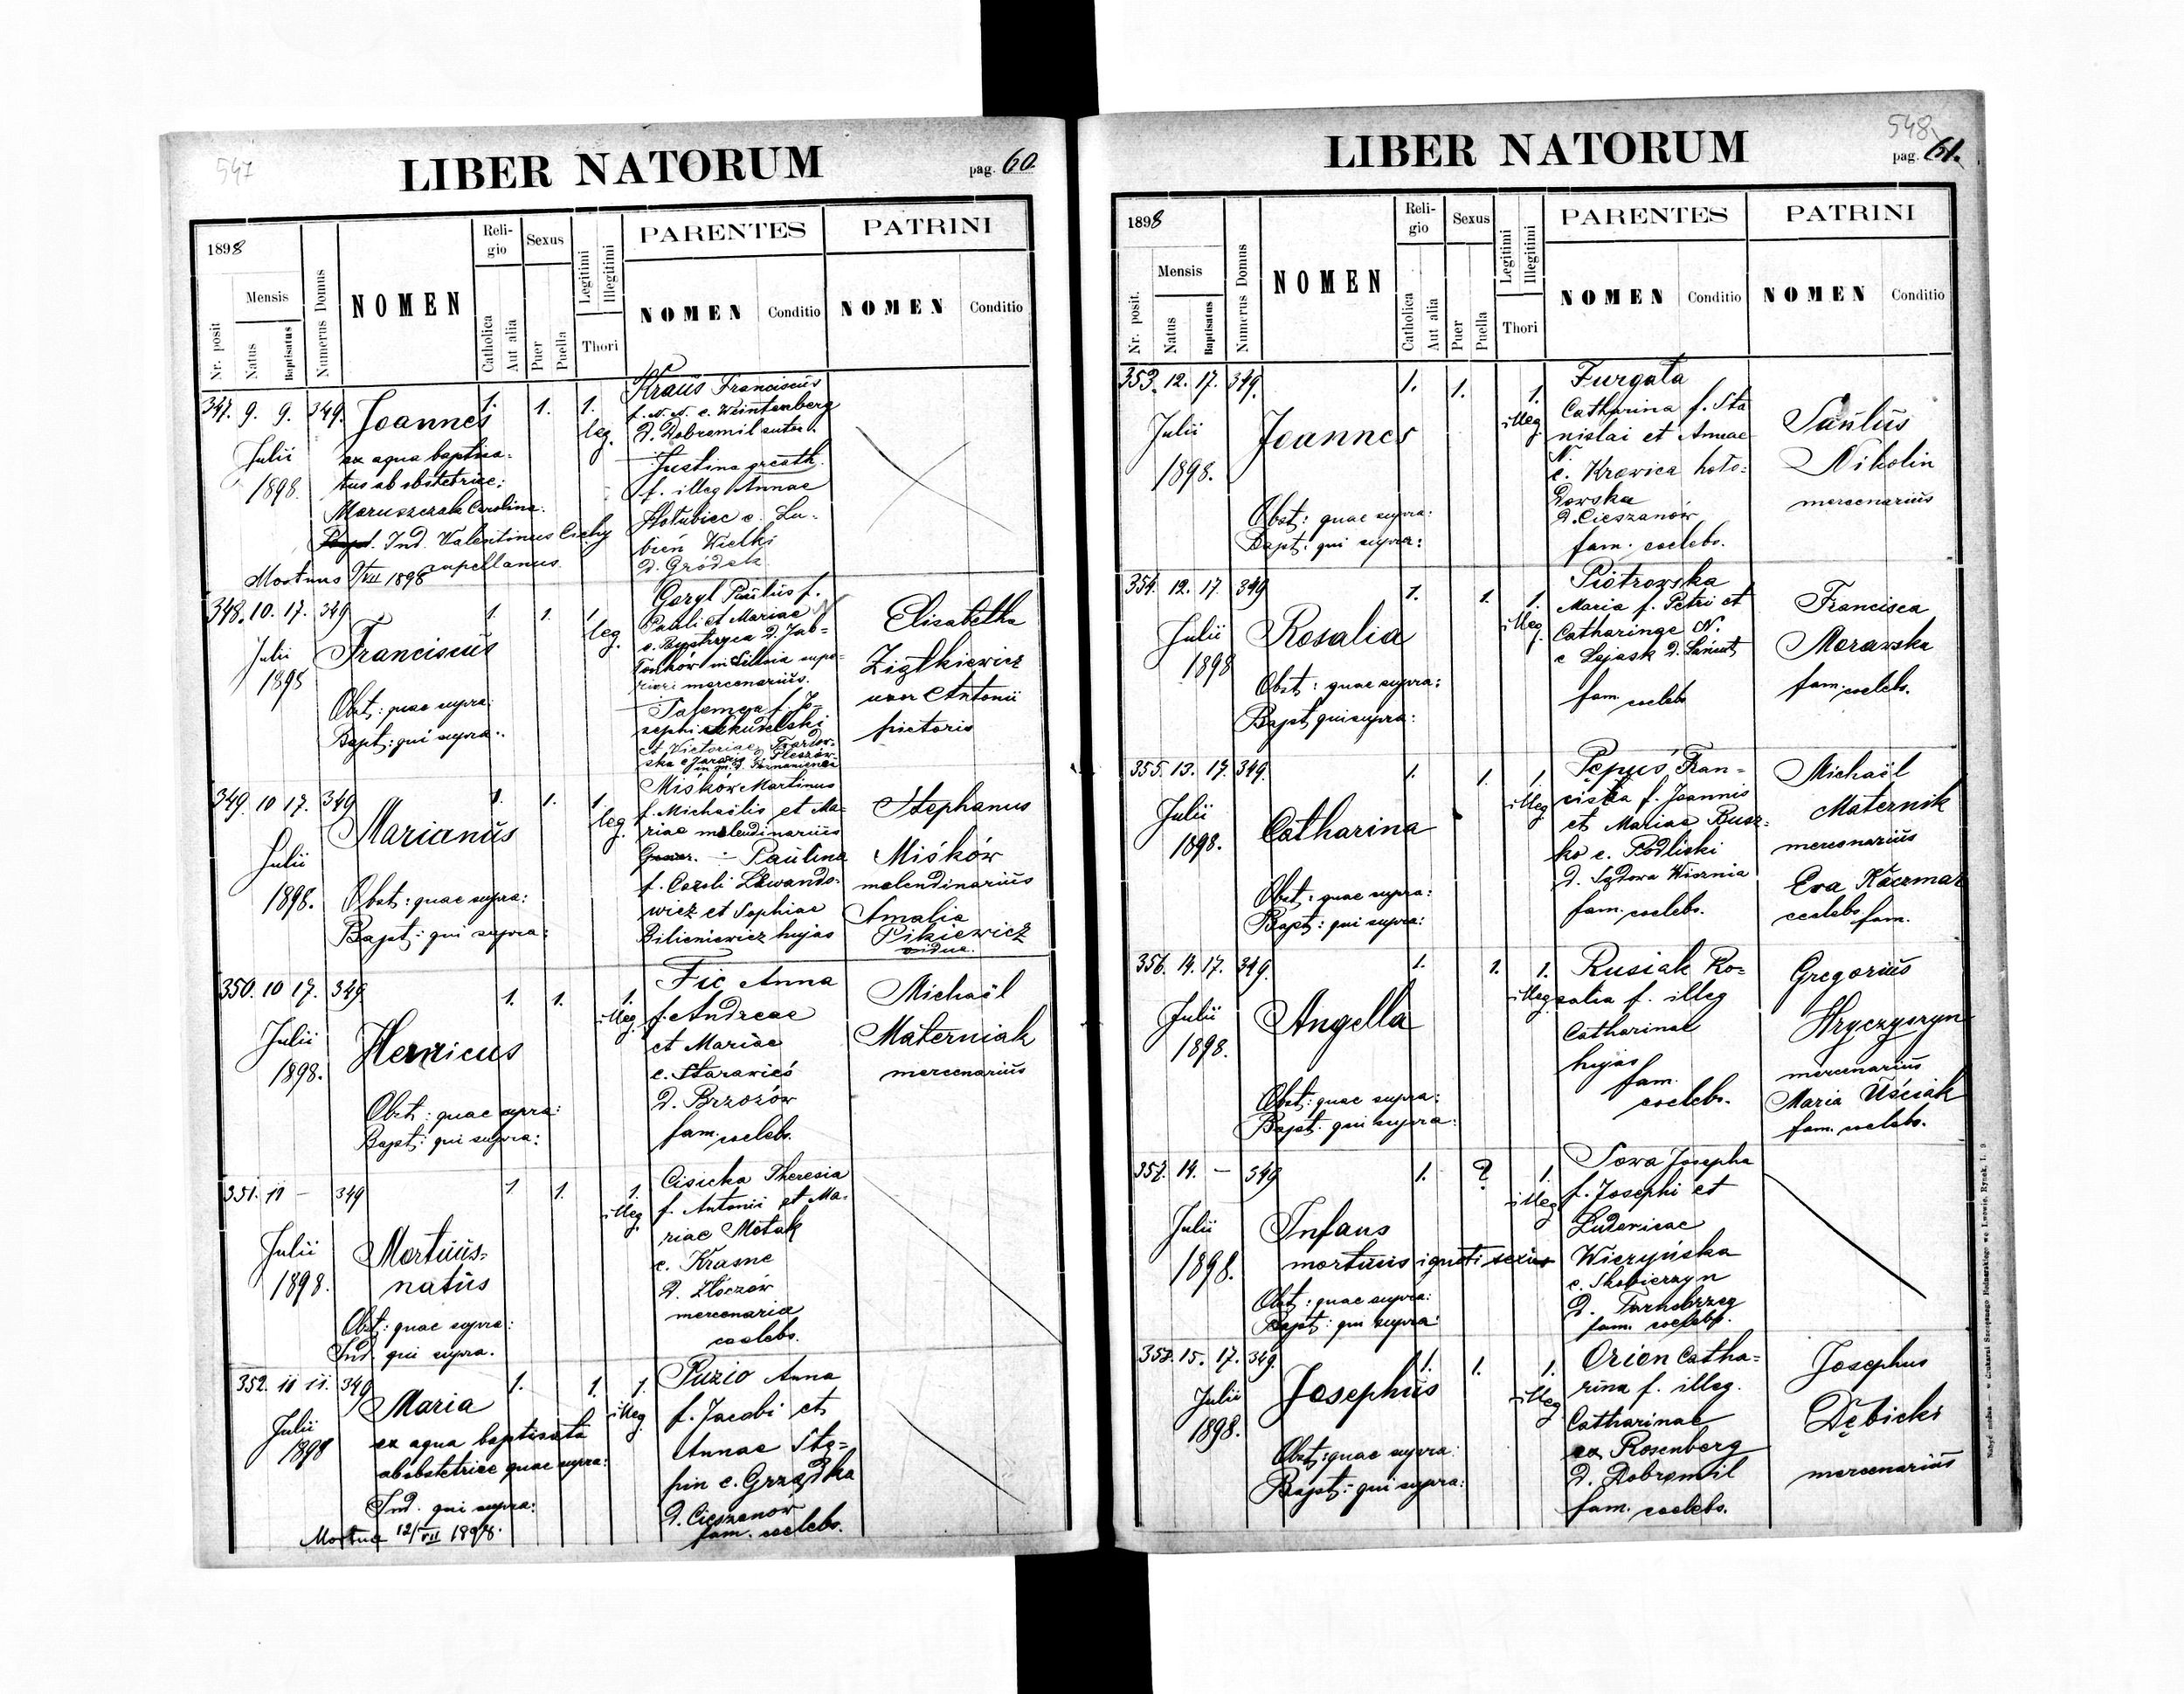 547
LIBER NATORUM
pag. 60.
1898
Mensis
Nr. posit
Natus
Baptisatus
Numerus Domus
NOMEN
Religio
Catholica
Aut alia
Sexus
Puer
Puella
Legitimi
Illegitimi
Thori
PARENTES
NOMEN
Conditio
PATRINI
NOMEN
Conditio
347. 9. 9. 349. Joannes 1. 1. 1.
leg.
Julii
1898.
ex aqua baptisa-
tus ab obstetrice:
Maruszczak Carolina.
Ind. Valentinus Cichy
capellanus.
Mortuus 9/VII 1898
Kraus Franciscus
f. N. N. e. Weintenberg
D. Dobromil sutor.
Justina greath.
f. illeg Annae
Hołubiec e. Lu-
bień Wielki
D. Gródek
348. 10. 17. 349 1. 1. 1.
leg.
Julii
1898
Franciscus
Obst: quae supra:
Bapt: qui supra:
Goryl Paulus f.
Pauli et Mariae N
e. Bystryca D. Jab-
łonków in Silesia supe-
riori mercenarius.
f. Jo-
sephi Skudelski
et Victoriae
Elisabetha
Ziętkiewicz
uxor Antonii
pictoris
349. 10 17. 349 1. 1. 1.
leg.
Julii
1898.
Marianus
Obst: quae supra:
Bapt: qui supra:
Miśków Martinus
f. Michaëlis et Ma-
riae molendinarius
Paulina
f. Caroli Lewando-
wicz et Sophiae
Bilieniewicz hujas
Stephanus
Miśków
molendinarius
Amalia
Pikiewicz
vidua.
350. 10 17. 349 1. 1. 1.
illeg.
Julii
1898.
Henricus
Obst: quae supra:
Bapt: qui supra:
Fic Anna
f. Andreae
et Mariae
e. Starawieś
D. Brzozów
fam. coelebs.
Michaël
Materniak
mercenarius
351. 11 — 349 1 1. 1.
illeg.
Julii
1898.
Mortuus-
natus
Obst: quae supra:
Ind. qui supra.
Cisicka Theresia
f. Antonii et Ma-
riae Motak
e. Krasne
D. Złoczów
mercenaria
coelebs.
352. 11 11. 349 1. 1. 1.
illeg.
Julii
1898
Maria
ex aqua baptisata
ab obstetrice quae supra:
Ind. qui supra:
Mortua 12/VII 1898.
Puzio Anna
f. Jacobi et
Annae Stę-
pin e. Grządka
D. Cieszanów
fam. coelebs.
548
LIBER NATORUM
pag. 61.
1898
Mensis
Nr. posit.
Natus
Baptisatus
Numerus Domus
NOMEN
Religio
Catholica
Aut alia
Sexus
Puer
Puella
Legitimi
Illegitimi
Thori
PARENTES
NOMEN
Conditio
PATRINI
NOMEN
Conditio
353. 12. 17. 349. 1. 1. 1.
illeg.
Julii
1898.
Joannes
Obst: quae supra:
Bapt: qui supra:
Furgata
Catharina f. Sta
nislai et Annae
N.
e. Krowica hoło-
dowska
D. Cieszanów
fam. coelebs.
Paulus
Nikolin
mercenarius
354. 12. 17. 349 1. 1. 1.
illeg.
Julii
1898
Rosalia
Obst: quae supra:
Bapt: qui supra:
Piotrowska
Maria f. Petri et
Catharinae N.
e Lejask D. Łańcut
fam. coelebs
Francisca
Morawska
fam. coelebs.
355. 13. 17. 349. 1. 1. 1.
illeg
Julii
1898.
Catharina
Obst: quae supra:
Bapt: qui supra:
Pępuś Fran-
ciska f. Joannis
et Mariae Busz-
ko e. Podliski
D. Sądowa Wisznia
fam. coelebs.
Michaël
Maternik
mercenarius
Eva Kaczmar
coelebs fam.
356. 14. 17. 349. 1. 1. 1.
illeg
Julii
1898.
Angella
Obst: quae supra:
Bapt. qui supra:
Rusiak Ro-
salia f. illeg
Catharinae
hujas
fam.
coelebs.
Gregorius
Hryczyszyn
mercenarius
Maria Uściak
fam. coelebs.
357. 14. — 349 1. ? 1.
illeg
Julii
1898.
Infans
mortuus ignoti sexus
Obst: quae supra:
Bapt: qui supra:
Sowa Josepha
f. Josephi et
Ludovicae
Wiczyńska
e. Skobierzyn
D. Tarnobrzeg
fam. coelebs.
358. 15. 17. 349. 1. 1. 1.
illeg
Julii
1898.
Josephus
Obst: quae supra:
Bapt: qui supra:
Orion Catha-
rina f. illeg.
Catharinae
ex Rosenberg
D. Dobromil
fam. coelebs.
Josephus
Dębicki
mercenarius